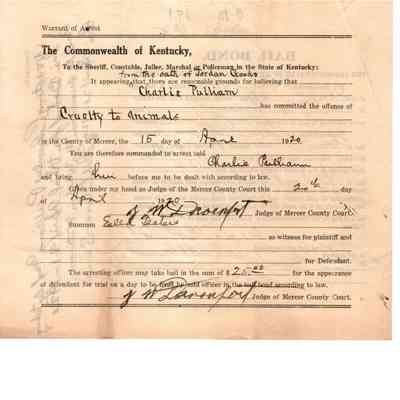 Warrant of Arrest
The Commonwealth of Kentucky,
To the Sheriff, Constable, Jailer, Marshal or Policeman in the State of Kentucky:
from the oath of Jordan
It appearing that there are reasonable grounds for believing that
Charlie Pulliam
has committed the offence of
Cruelty to Animals
in the County of Mercer, the 15 day of April 1920
You are therefore commanded to arrest said Charlie Pulliam
and bring him before me to be dealt with according to law.
Given under my hand as Judge of the Mercer County this day
of April 1920
J W Davenport Judge of Mercer County Court.
Summon
as witness for plaintiff and
for Defendant.
The arresting officer may take bail in the sum of $25.00 for the appearance
of defendant for trial on a day to be fixed by said officer in the bail bond according to law.
J W Davenport Judge of Mercer County Court.